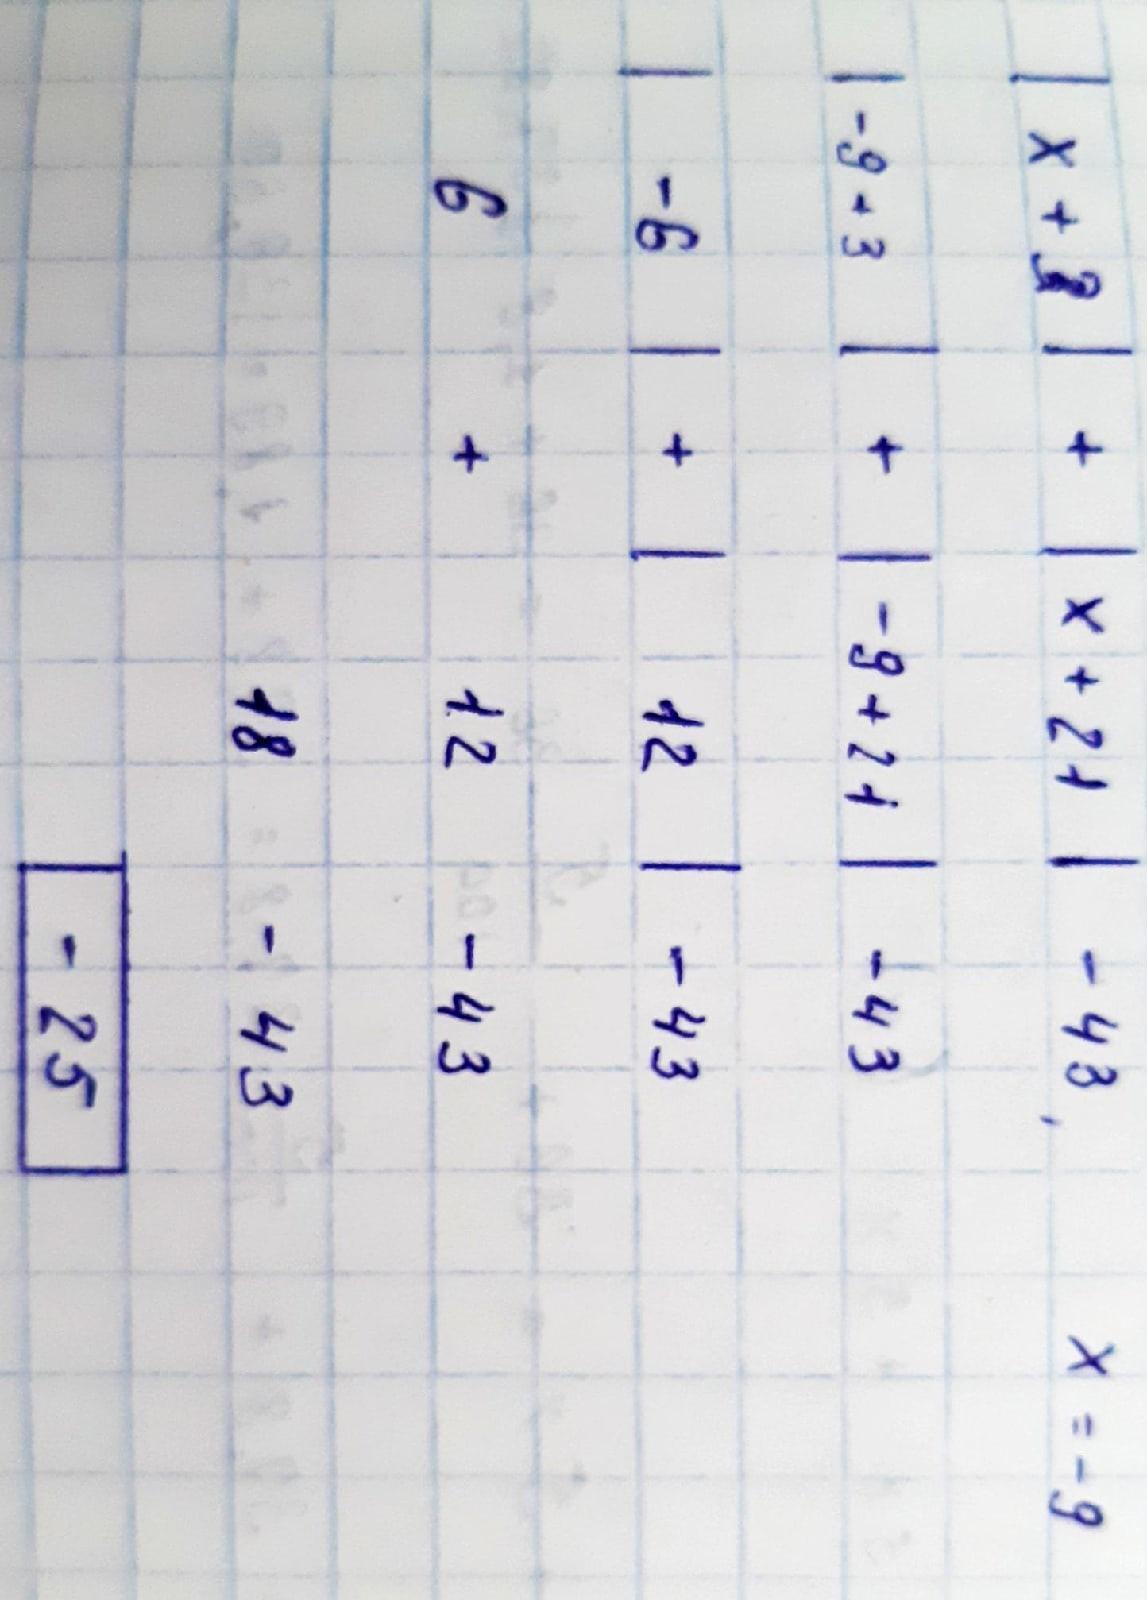 | x + 3 | + | x + 21 | - 43, x = -9
| -9 + 3 | + | -9 + 21 | - 43
| -6 | + | 12 | - 43
6 + 12 - 43
18 - 43
- 25